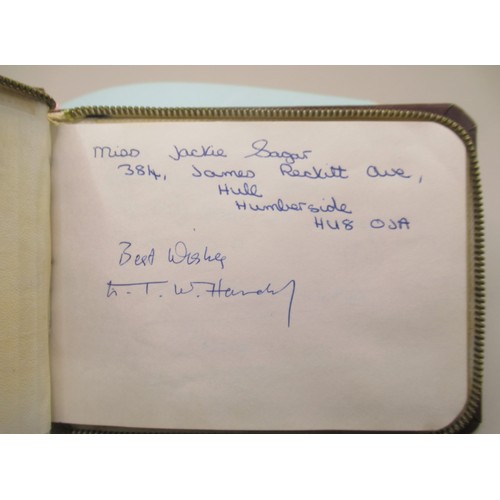 Miss Jackie Sagar
384, James Reckitt Ave,
Hull
Humberside
HU8 OJA
Best Wishes
T. W. Handley